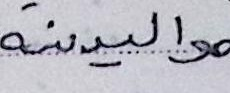 مواليدسنة